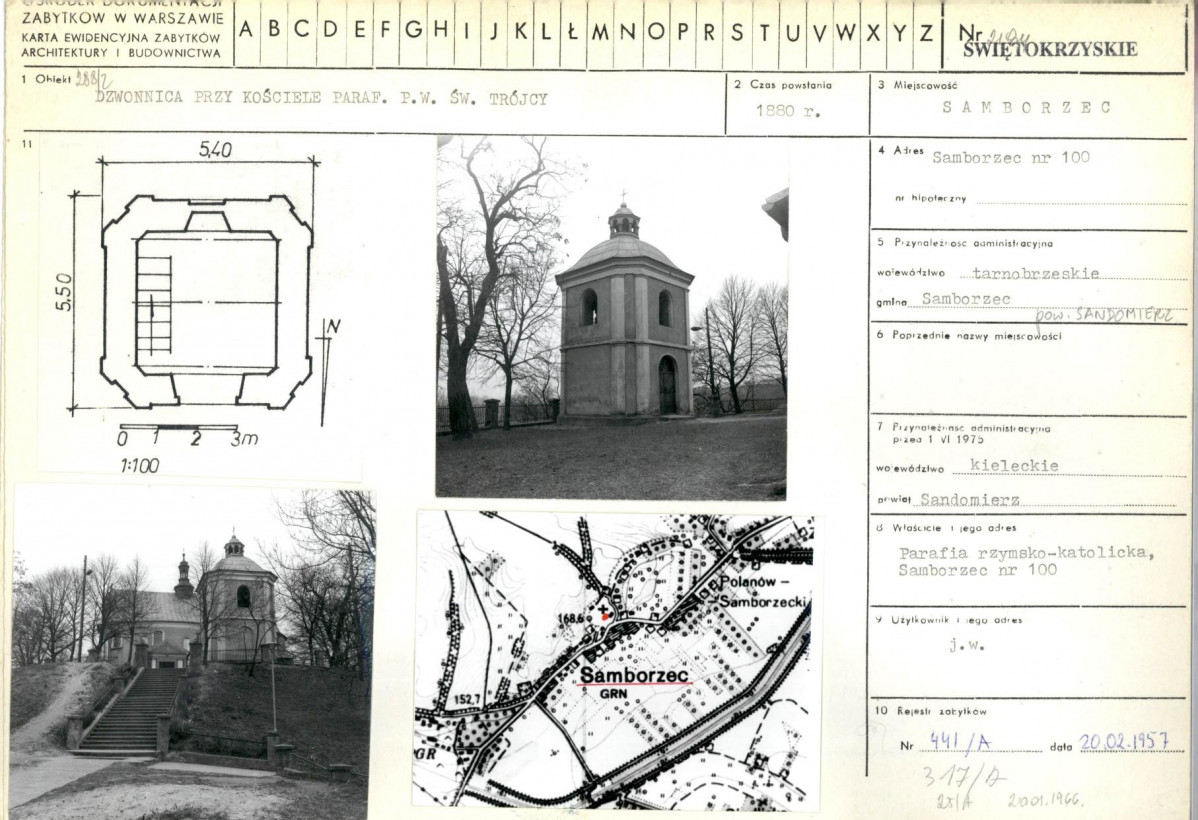 OŚRODEK DOKUMENTACJI
ZABYTKÓW W WARSZAWIE
KARTA EWIDENCYJNA ZABYTKÓW
ARCHITEKTURY I BUDOWNICTWA
A B C D E F G H I J K L Ł M N O P R S T U V W X Y Z
Nr
ŚWIĘTOKRZYSKIE
1 Obiekt 288/2
DZWONNICA PRZY KOŚCIELE PARAF. P.W. ŚW. TRÓJCY
2 Czas powstania
1880 r.
3 Miejscowość
SAMBORZEC
11
5,40
5,50
N
0 1 2 3m
1:100
4 Adres Samborzec nr 100
nr hipoteczny
5 Przynależność administracyjna
województwo tarnobrzeskie
gmina Samborzec
pow. SANDOMIERZ
6 Poprzednie nazwy miejscowości
7 Przynależność administracyjna
przed 1 VI 1975
województwo kieleckie
powiat Sandomierz
8 Właściciel i jego adres
Parafia rzymsko-katolicka,
Samborzec nr 100
9 Użytkownik i jego adres
j.w.
10 Rejestr zabytków
Nr 441/A data 20.02.1957
317/A
25/A 20.01.1966.
Polanów –
Samborzecki
168,6
Samborzec
GRN
152,7
GR